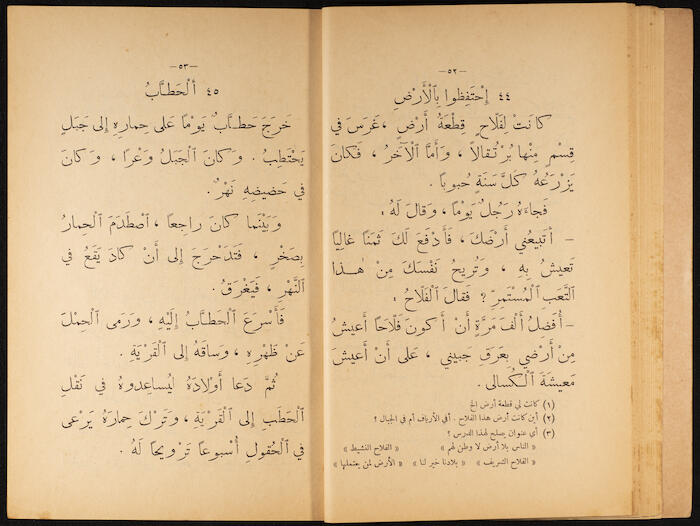 -٥٢-
٤٤ إِحْتَفِظُوا بِٱلْأَرْضِ
كَانَتْ لِفَلَّاحٍ قِطْعَةُ أَرْضٍ ، غَرَسَ فِي
قِسْمٍ مِنْهَا بُرْتُقَالاً ، وَأَمَّا ٱلْآخَرُ ، فَكَانَ
يَزْرَعُهُ كُلَّ سَنَةٍ حُبُوباً .
فَجَاءَهُ رَجُلٌ يَوْماً ، وَقَالَ لَهُ :
– أَتَبِيعُنِي أَرْضَكَ ، فَأَدْفَعَ لَكَ ثَمَناً غَالِياً
تَعِيشُ بِهِ ، وَتُرِيحُ نَفْسَكَ مِنْ هٰذَا
ٱلتَّعَبِ ٱلْمُسْتَمِرِّ ؟ فَقَالَ ٱلْفَلَّاحُ :
– أُفَضِّلُ أَلْفَ مَرَّةٍ أَنْ أَكُونَ فَلَّاحاً أَعِيشُ
مِنْ أَرْضِي بِعَرَقِ جَبِينِي ، عَلَى أَنْ أَعِيشَ
مَعِيشَةَ ٱلْكَسَالَى .
(١) كانت لي قطعة أرض الخ
(٢) أين كانت أرض هذا الفلاح . أفي الأرياف أم في الجبال ؟
(٣) أي عنوان يصلح لهذا الدرس ؟
« الناس بلا أرض لا وطن لهم » « الفلاح النشيط »
« الفلاح الشريف » « بلادنا خير لنا » « الأرض لمن يعتملها »
-٥٣-
٤٥ أَلْحَطَّابُ
خَرَجَ حَطَّابٌ يَوْماً عَلَى حِمَارِهِ إِلَى جَبَلٍ
يَحْتَطِبُ . وَكَانَ ٱلْجَبَلُ وَعْراً ، وَكَانَ
فِي حَضِيضِهِ نَهْرٌ .
وَبَيْنَمَا كَانَ رَاجِعاً ، ٱصْطَدَمَ ٱلْحِمَارُ
بِصَخْرٍ ، فَتَدَحْرَجَ إِلَى أَنْ كَادَ يَقَعُ فِي
ٱلنَّهْرِ ، فَيَغْرَقُ .
فَأَسْرَعَ ٱلْحَطَّابُ إِلَيْهِ ، وَرَمَى ٱلْحِمْلَ
عَنْ ظَهْرِهِ ، وَسَاقَهُ إِلَى ٱلْقَرْيَةِ .
ثُمَّ دَعَا أَوْلَادَهُ لِيُسَاعِدُوهُ فِي نَقْلِ
ٱلْحَطَبِ إِلَى ٱلْقَرْيَةِ ، وَتَرَكَ حِمَارَهُ يَرْعَى
فِي ٱلْحُقُولِ أُسْبُوعاً تَرْوِيحاً لَهُ .